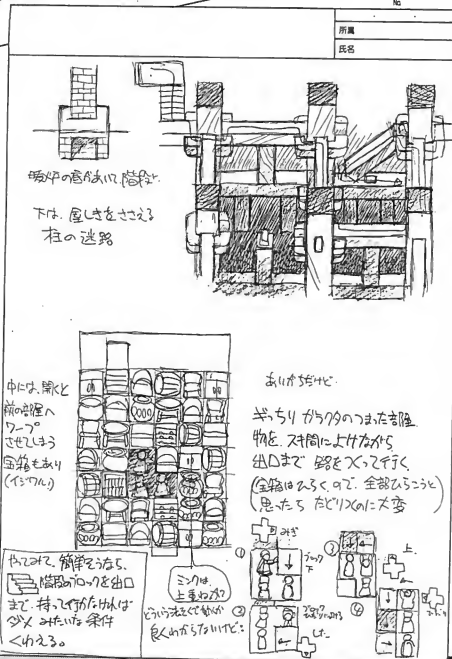 No
所属
氏名
暖炉の唇があいて、階段に
下は、屋しきをささえる
柱の迷路
中には、開くと
前の部屋へ
ワープ
させてしまう
宝箱もあり
(イジワル)
ありがちだけど
ぎっちり ガラクタのつまった部屋
物を、スキ間によけながら
出口まで 路をつくって行く。
(宝箱はひらくので、全部ひらこうと
思ったら たどりつくのに大変)
やってみて、簡単そうなら、
階段のブロックを出口
まで、持って行かなければ
ダメ みたいな条件
くわえる。
ミンクは、
上重ねが?
良くわからないけど:
① みぎ
ブロック
下
②
した
③ 上
④